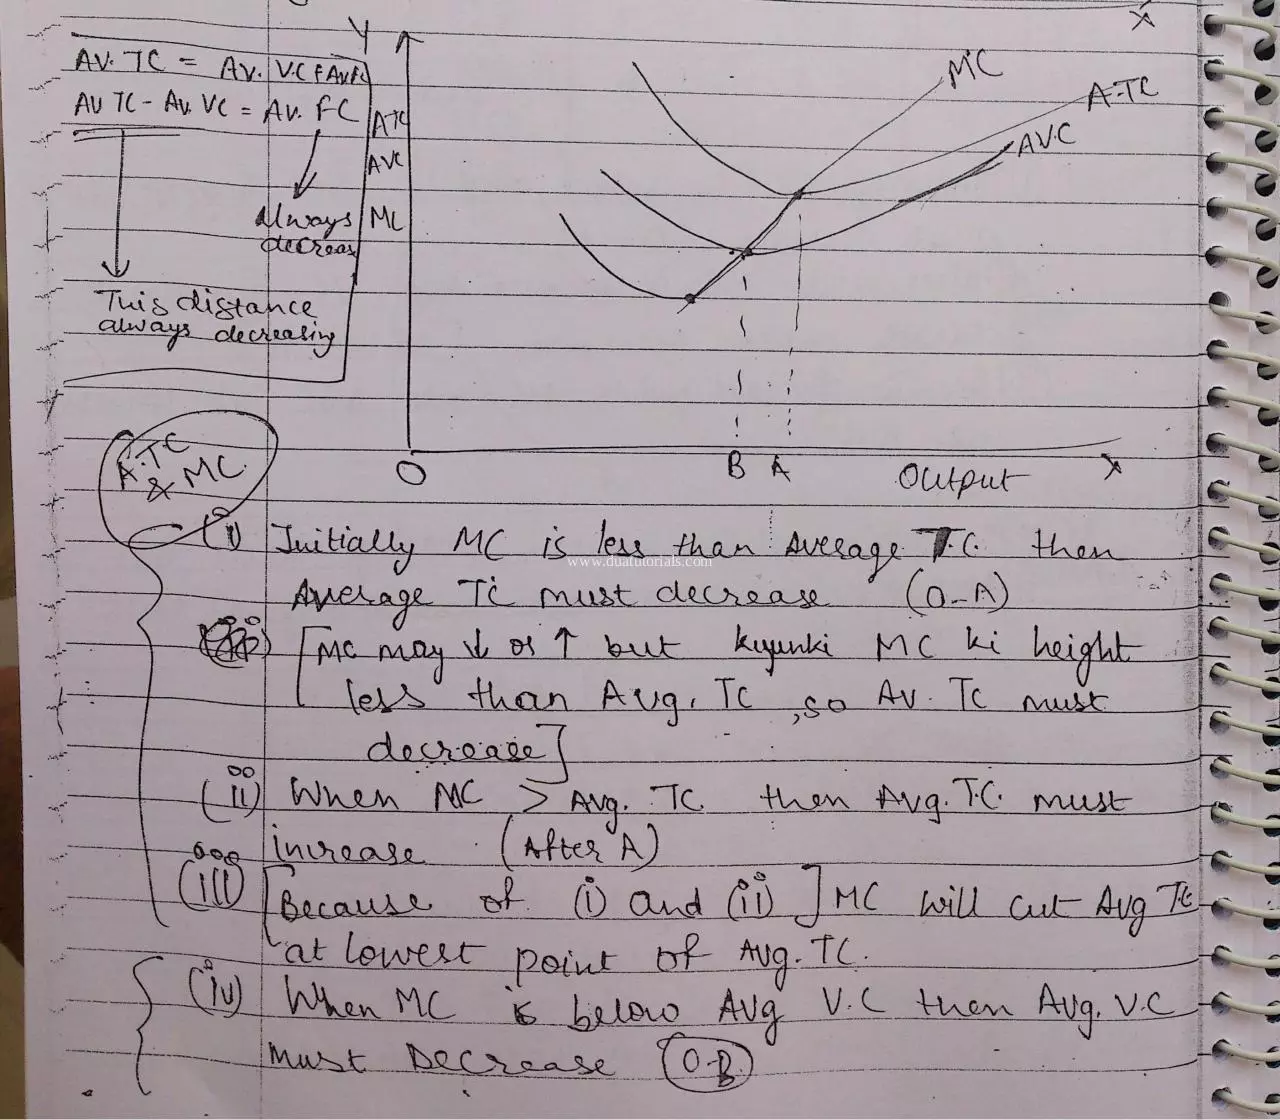 Y
X
AV. TC = AV. VC + AV.FC
AV TC - AV. VC = AV. FC
Always
decreas
This distance
always decreasing
ATC
AVC
MC
MC
A.TC
AVC
O
B A
Output
X
A.TC
& MC.
(i) Initially MC is less than Average T.C. then
www.duatutorials.com
Average TC must decrease (O-A)
[MC may ↓ or ↑ but kyunki MC ki height
less than Avg. TC, so AV. TC must
decrease]
(ii) When MC > Avg. TC then Avg.T.C. must
increase (After A)
(iii) [Because of (i) and (ii)] MC will cut Avg TC
at lowest point of Avg. TC.
(iv) When MC is below AVg V.C then Avg. V.C
must Decrease (O-B)